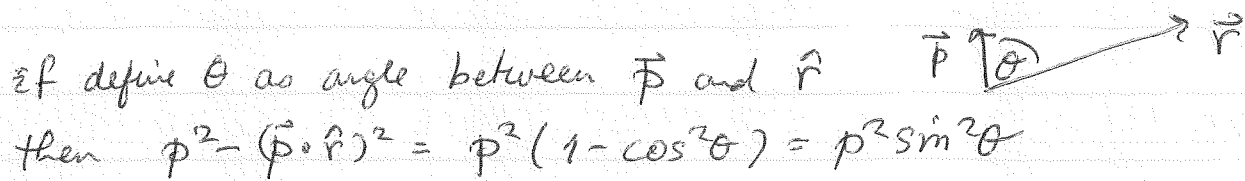 if define θ as angle between p⃗ and r̂
p⃗ θ r⃗
then p² - (p⃗·r̂)² = p²(1 - cos²θ) = p² sin²θ